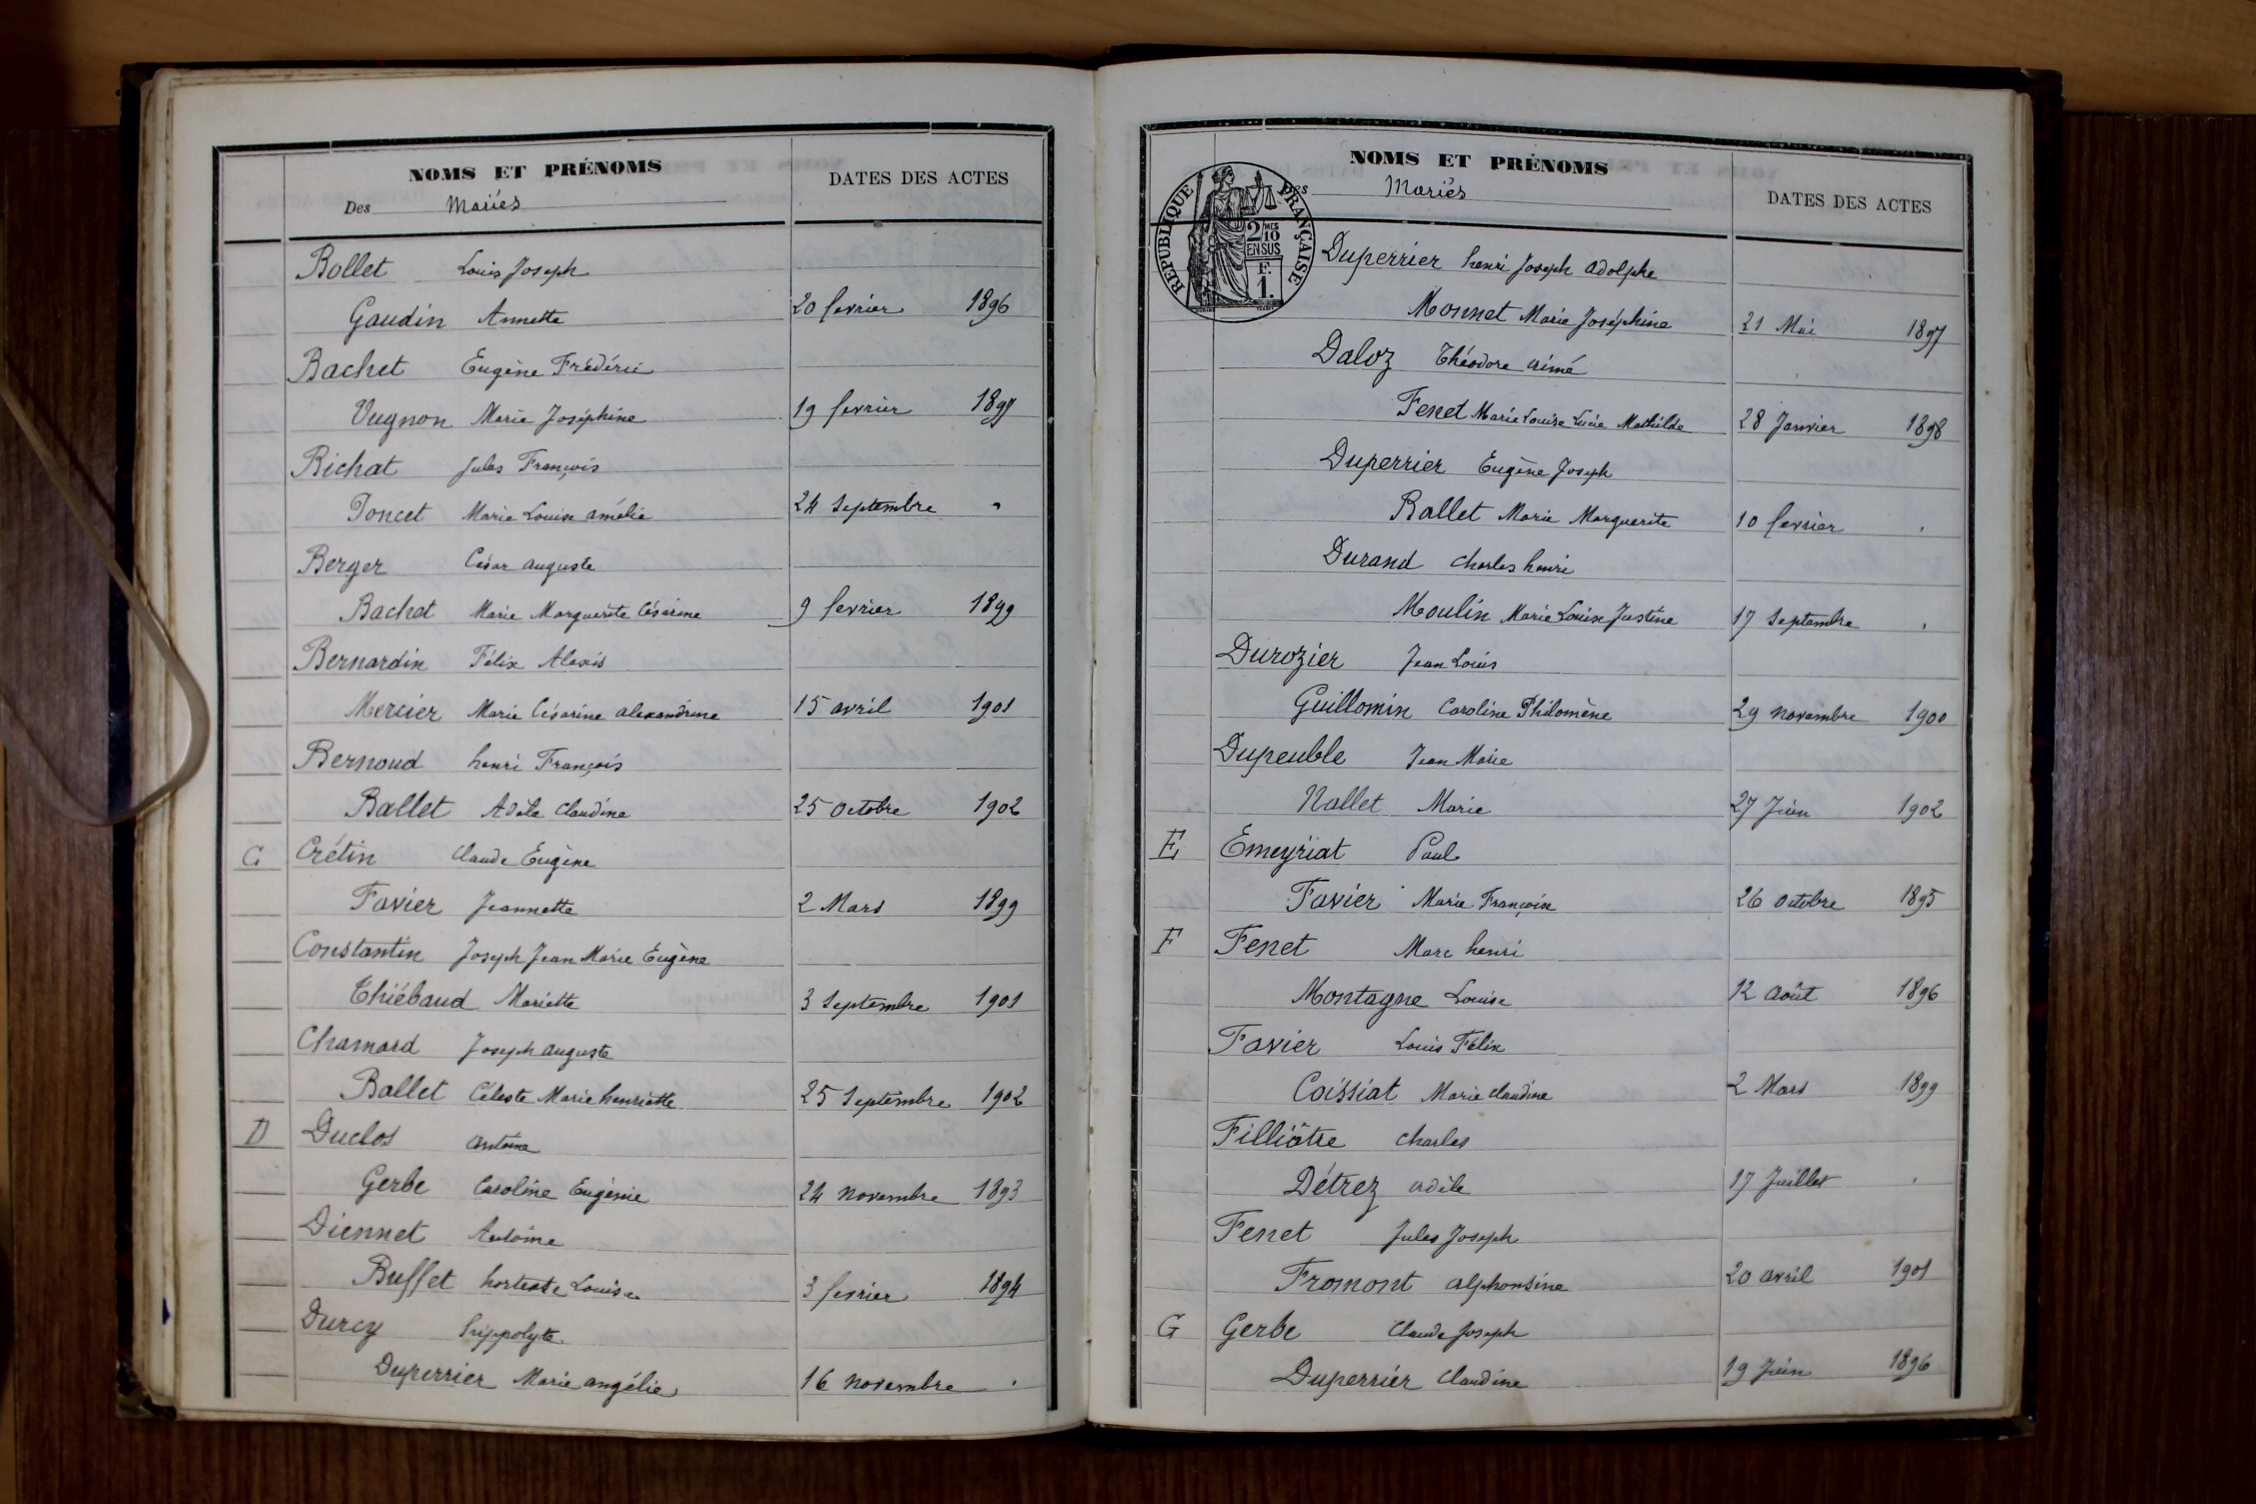 NOMS ET PRÉNOMS
Des Mariés
DATES DES ACTES
Bollet Louis Joseph
Gaudin Annette 20 fevrier 1896
Bachet Eugène Frédéric
Vugnon Marie Joséphine 19 fevrier 1897
Bichat Jules François
Poncet Marie Louise amélie 24 Septembre "
Berger César auguste
Bachet Marie Marguerite Césarine 9 fevrier 1899
Bernardin Félix Alexis
Mercier Marie Césarine alexandrine 15 avril 1901
Bernoud henri François
Ballet Adèle Claudine 25 Octobre 1902
C Crétin Claude Eugène
Favier Jeannette 2 Mars 1899
Constantin Joseph Jean Marie Eugène
Thiébaud Mariette 3 Septembre 1901
Chamard Joseph auguste
Ballet Céleste Marie henriette 25 Septembre 1902
D Duclos antoine
Gerbe Caroline Eugénie 24 novembre 1893
Diennet Antoine
Buffet hortense Louise 3 fevrier 1894
Durcy hippolyte
Duperrier Marie angélie 16 novembre "
NOMS ET PRÉNOMS
Des Mariés
DATES DES ACTES
RÉPUBLIQUE FRANÇAISE
2/10MES
EN SUS
F.
1.
Duperrier henri Joseph adolphe
Monnet Marie Joséphine 21 Mai 1897
Daloz Théodore aimé
Fenet Marie Louise Lucie Mathilde 28 Janvier 1898
Duperrier Eugène Joseph
Ballet Marie Marguerite 10 fevrier "
Durand Charles henri
Moulin Marie Louise Justine 17 Septembre "
Durozier Jean Louis
Guillomin Caroline Philomène 29 novembre 1900
Dupeuble Jean Marie
Nallet Marie 27 Juin 1902
E Emeyriat Paul
Favier Marie Françoise 26 octobre 1895
F Fenet Marc henri
Montagne Louise 12 Août 1896
Favier Louis Félix
Coissiat Marie Claudine 2 Mars 1899
Filliâtre Charles
Détrez adèle 17 Juillet "
Fenet Jules Joseph
Fromont alphonsine 20 avril 1901
G Gerbe Claude Joseph
Duperrier Claudine 19 Juin 1896